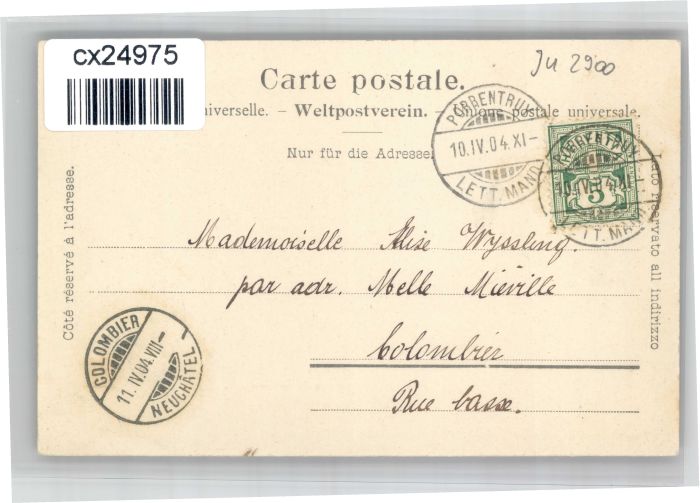 cx24975
JU 2900
Carte postale.
iverselle. – Weltpostverein. – Union postale universale.
Nur für die Adresse
PORRENTRUY
10.IV.04.XI–
LETT. MAND.
HELVETIA
5
PORRENTRUY
10.IV.04.XI–
LETT. MAND.
Côté réservé à l'adresse.
Lato riservato all indirizzo
Mademoiselle Alise Wyssling.
par adr. Melle Miéville
Colombier
Rue basse.
COLOMBIER
11.IV.04.VIII–
NEUCHÂTEL